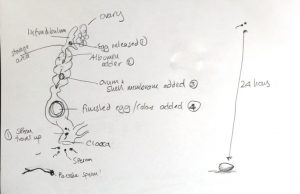 ovary
Infundibulum
Egg released ①
storage area
Albumen added ②
Ovum &
shell membrane added ③
Finished egg/colour added ④
① Sperm travels up
Cloaca
Sperm
Possible sperm
24 hours